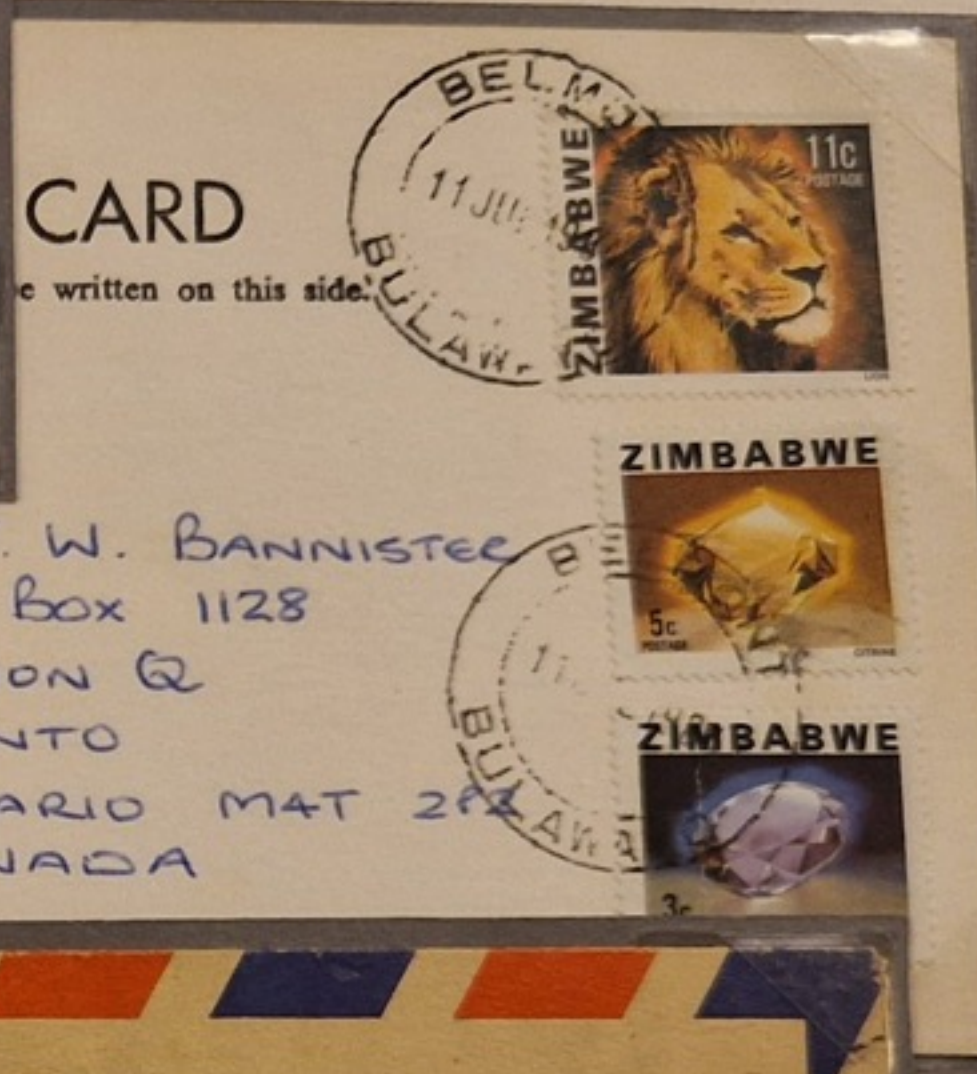 CARD
written on this side.
BELMO
11 JU
BULAW
ZIMBABWE
11c
POSTAGE
LION
ZIMBABWE
5c
POSTAGE
CITRINE
ZIMBABWE
3c
W. BANNISTER
BOX 1128
ON Q
NTO
ARIO M4T
NADA
B
11
BULAWA